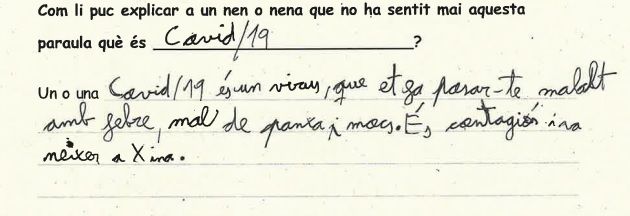 Com li puc explicar a un nen o nena que no ha sentit mai aquesta
paraula què és Covid/19 ?
Un o una Covid/19 és un virus, que et fa posar-te malalt
amb febre, mal de panxa i mocs. És contagiós i va
néixer a Xina.